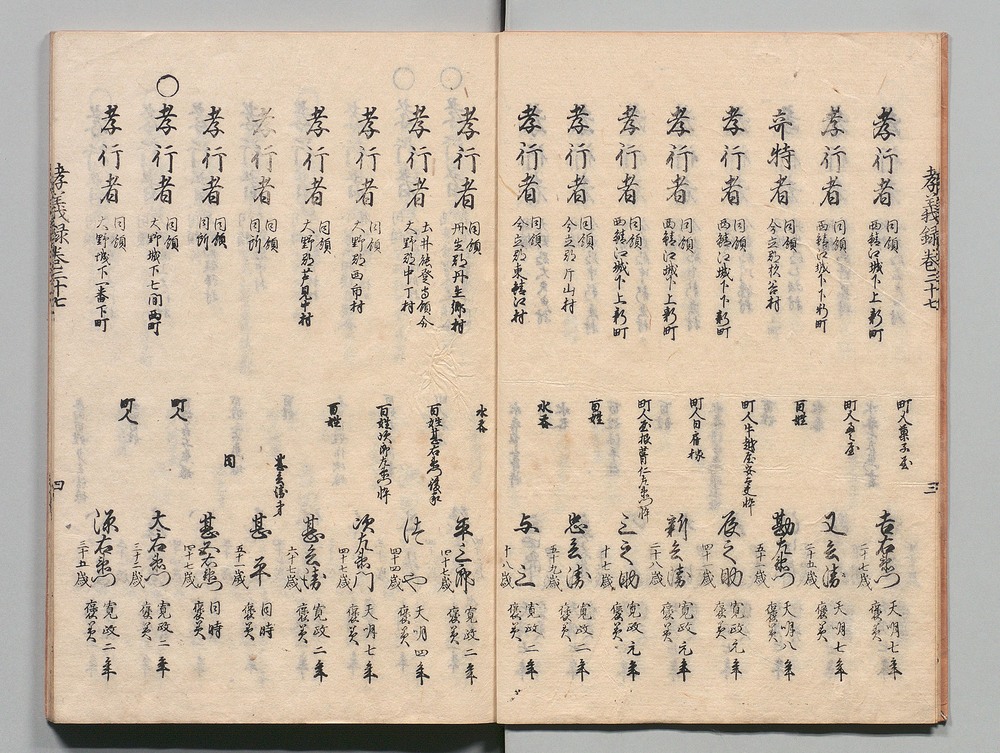 孝義録巻三十七
三
孝行者 同領 西鯖江城下上新町 町人菓子屋 吉右衛門 二十七歳 天明七年 褒美
孝行者 同領 西鯖江城下下新町 町人 又兵衛 二十五歳 天明七年 褒美
奇特者 同領 今立郡 百姓 勘左衛門 五十一歳 天明八年 褒美
孝行者 同領 西鯖江城下下新町 辰之助 四十一歳 寛政元年 褒美
孝行者 同領 西鯖江城下上新町 町人 新兵衛 二十八歳 寛政元年 褒美
孝行者 同領 西鯖江城下上新町 三之助 十七歳 寛政元年 褒美
孝行者 同領 今立郡片山村 百姓 忠兵衛 五十九歳 寛政二年 褒美
孝行者 同領 今立郡東鯖江村 水呑 与三 十八歳 寛政二年 褒美
孝行者 同領 丹生郡丹生郷村 水呑 年三郎 四十七歳 寛政二年 褒美
孝行者 土井能登守領分 大野郡中丁村 百姓甚右衛門後家 はや 四十四歳 天明四年 褒美
孝行者 同領 大野郡西市村 百姓次郎左衛門忰 次左衛門 四十七歳 天明七年 褒美
孝行者 同領 大野郡芦見中村 百姓 甚兵衛 六十七歳 寛政二年 褒美
孝行者 同領 同所 甚兵衛弟 甚平 五十一歳 同時 褒美
孝行者 同領 同所 同 甚五右衛門 四十七歳 同時 褒美
○孝行者 同領 大野城下七間西町 町人 大右衛門 三十三歳 寛政二年 褒美
孝行者 同領 大野城下一番下町 町人 源右衛門 三十五歳 寛政二年 褒美
孝義録巻三十七
四